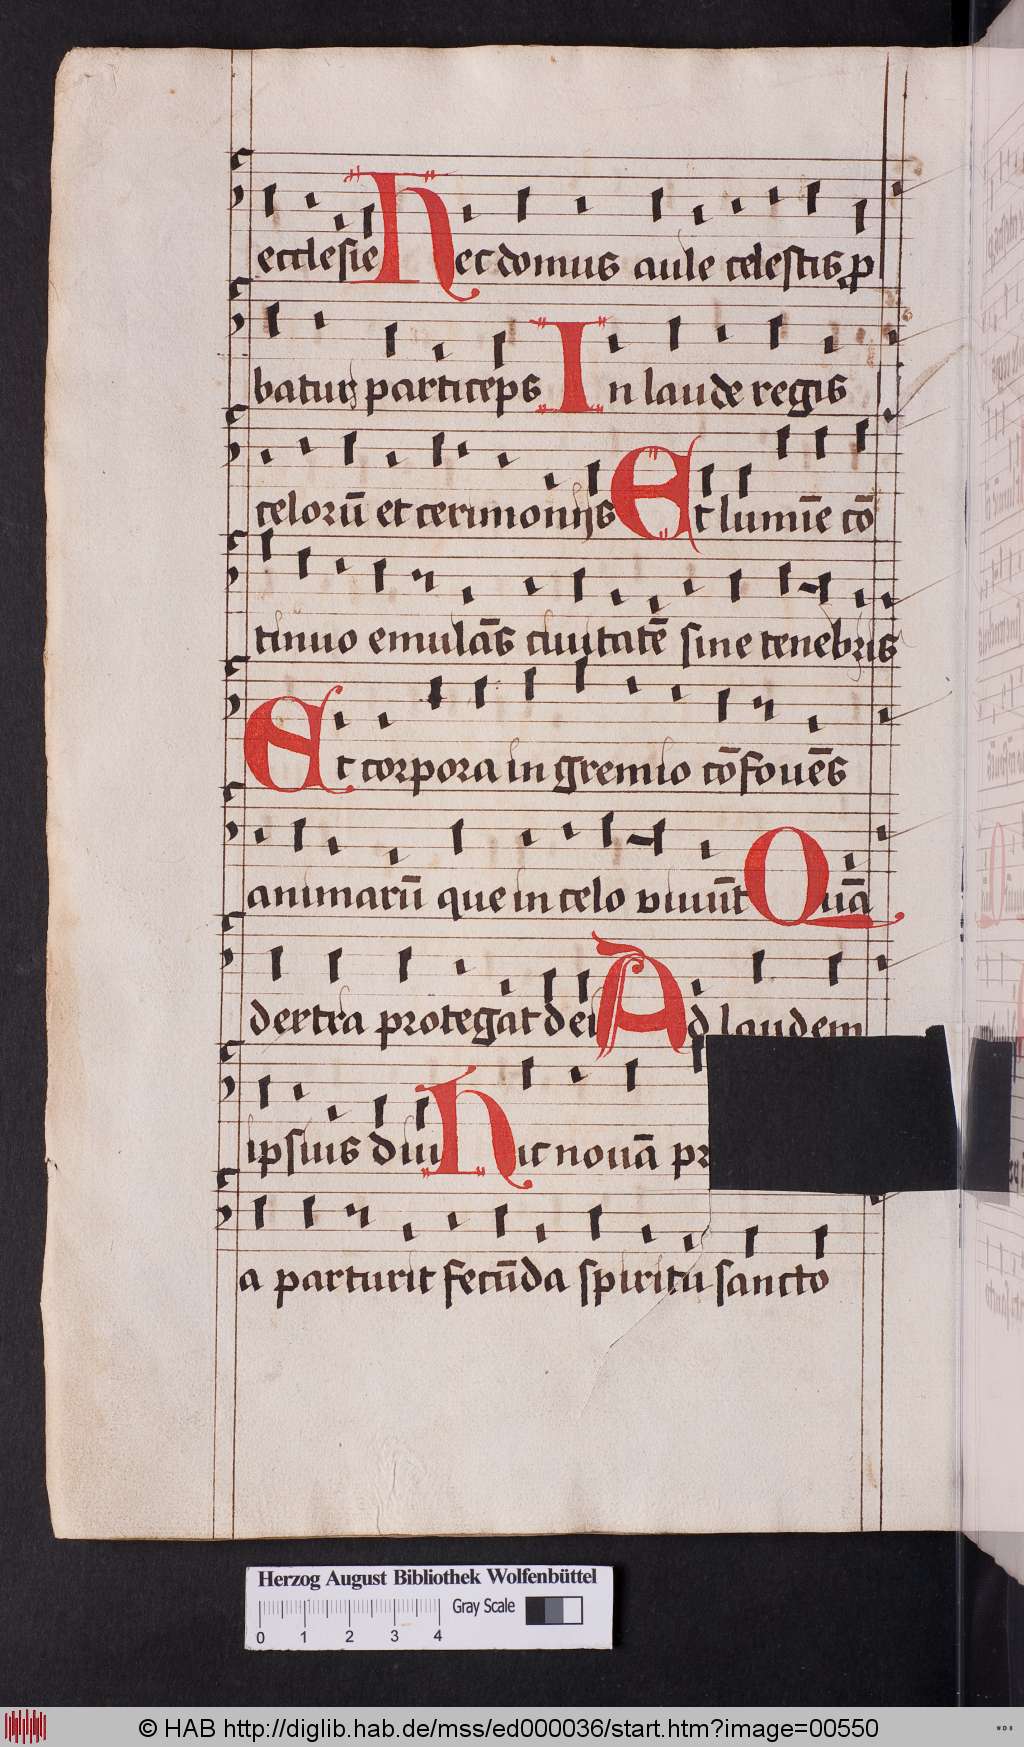 ecclesie Hec domus aule celestis p
batur particeps In laude regis
celorū et cerimonijs Et lumīe cō
tinuo emulās ciuitatē sine tenebris
Et corpora in gremio cōfouēs
animarū que in celo viuūt Quā
dextra protegat dei Ad laudem
ipsius diu Hic nouā pr
a parturit fecūda spiritu sancto
Herzog August Bibliothek Wolfenbüttel
Gray Scale
0 1 2 3 4
© HAB http://diglib.hab.de/mss/ed000036/start.htm?image=00550